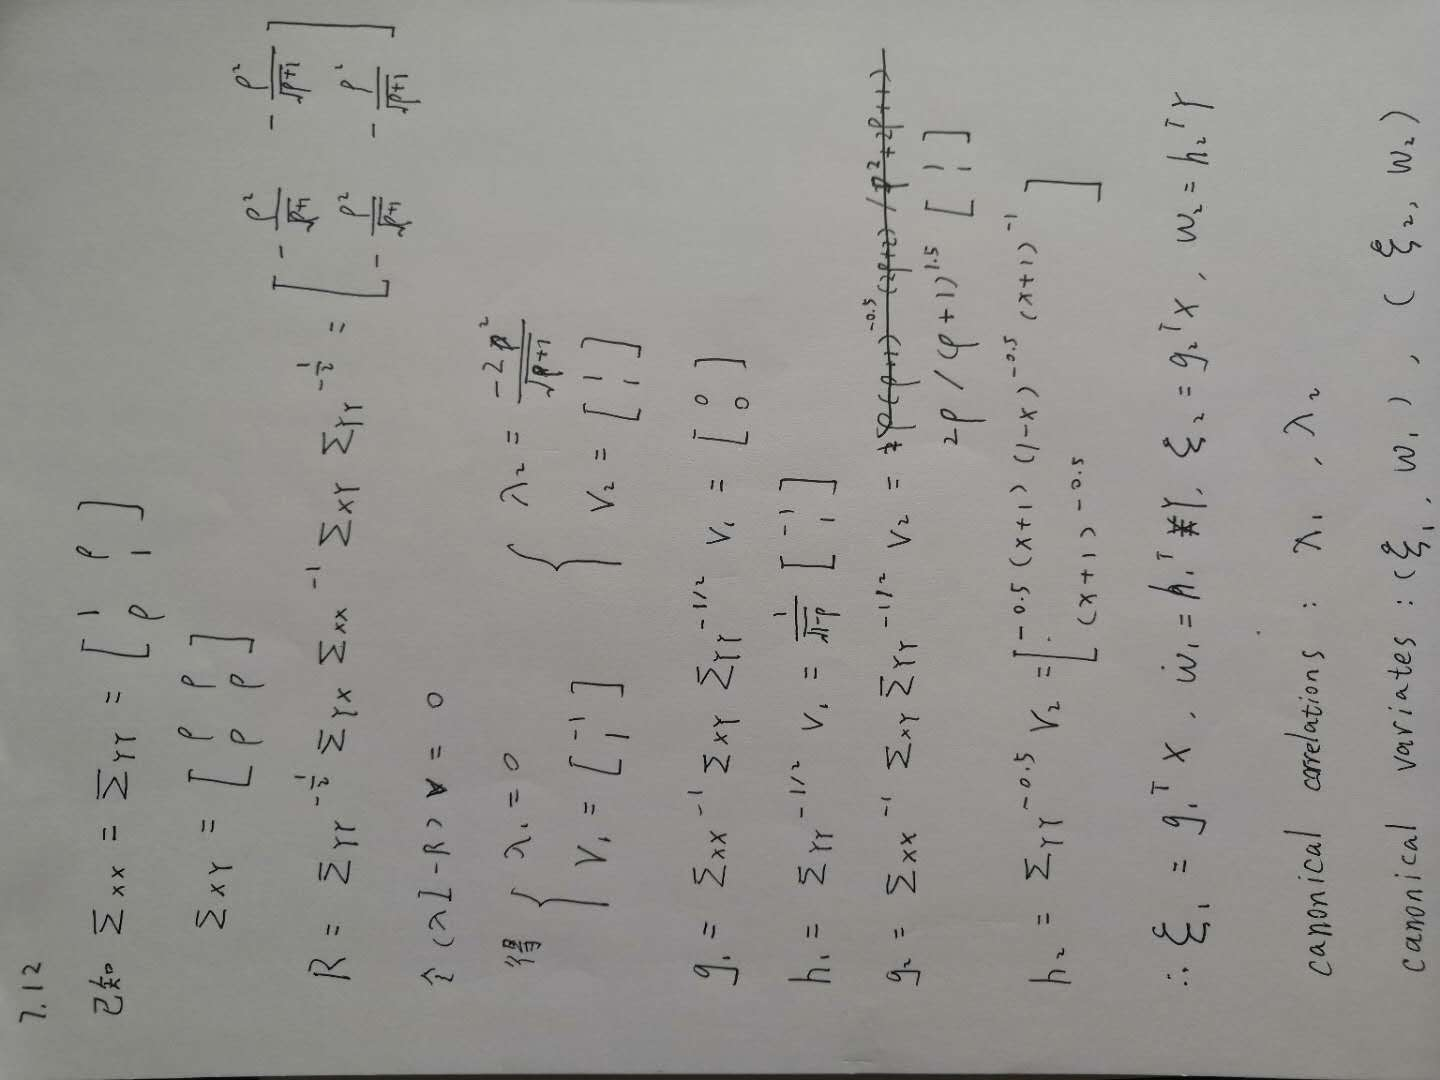 7.12
已知 Σxx = Σγγ = [1 ρ; ρ 1]
Σxγ = [ρ ρ; ρ ρ]
R = Σγγ^{-1/2} Σγx Σxx^{-1} Σxγ Σγγ^{-1/2} = [-ρ²/√(ρ+1) -ρ²/√(ρ+1); -ρ²/√(ρ+1) -ρ²/√(ρ+1)]
令 (λI-R) = 0
得 { λ₁ = 0 { λ₂ = -2ρ²/√(ρ+1)
V₁ = [-1; 1] V₂ = [1; 1]
g₁ = Σxx^{-1} Σxγ Σγγ^{-1/2} V₁ = [0; 0]
h₁ = Σγγ^{-1/2} V₁ = 1/√(1-ρ) [-1; 1]
g₂ = Σxx^{-1} Σxγ Σγγ^{-1/2} V₂ =
2ρ/(ρ+1)^{1.5} [1; 1]
h₂ = Σγγ^{-0.5} V₂ = [-0.5(x+1)(1-x)^{-0.5}(x+1)^{-1}; (x+1)^{-0.5}]
∴ ξ₁ = g₁ᵀX, w₁ = h₁ᵀY, ξ₂ = g₂ᵀX, w₂ = h₂ᵀY
canonical correlations : λ₁, λ₂
canonical variates : (ξ₁, w₁), (ξ₂, w₂)